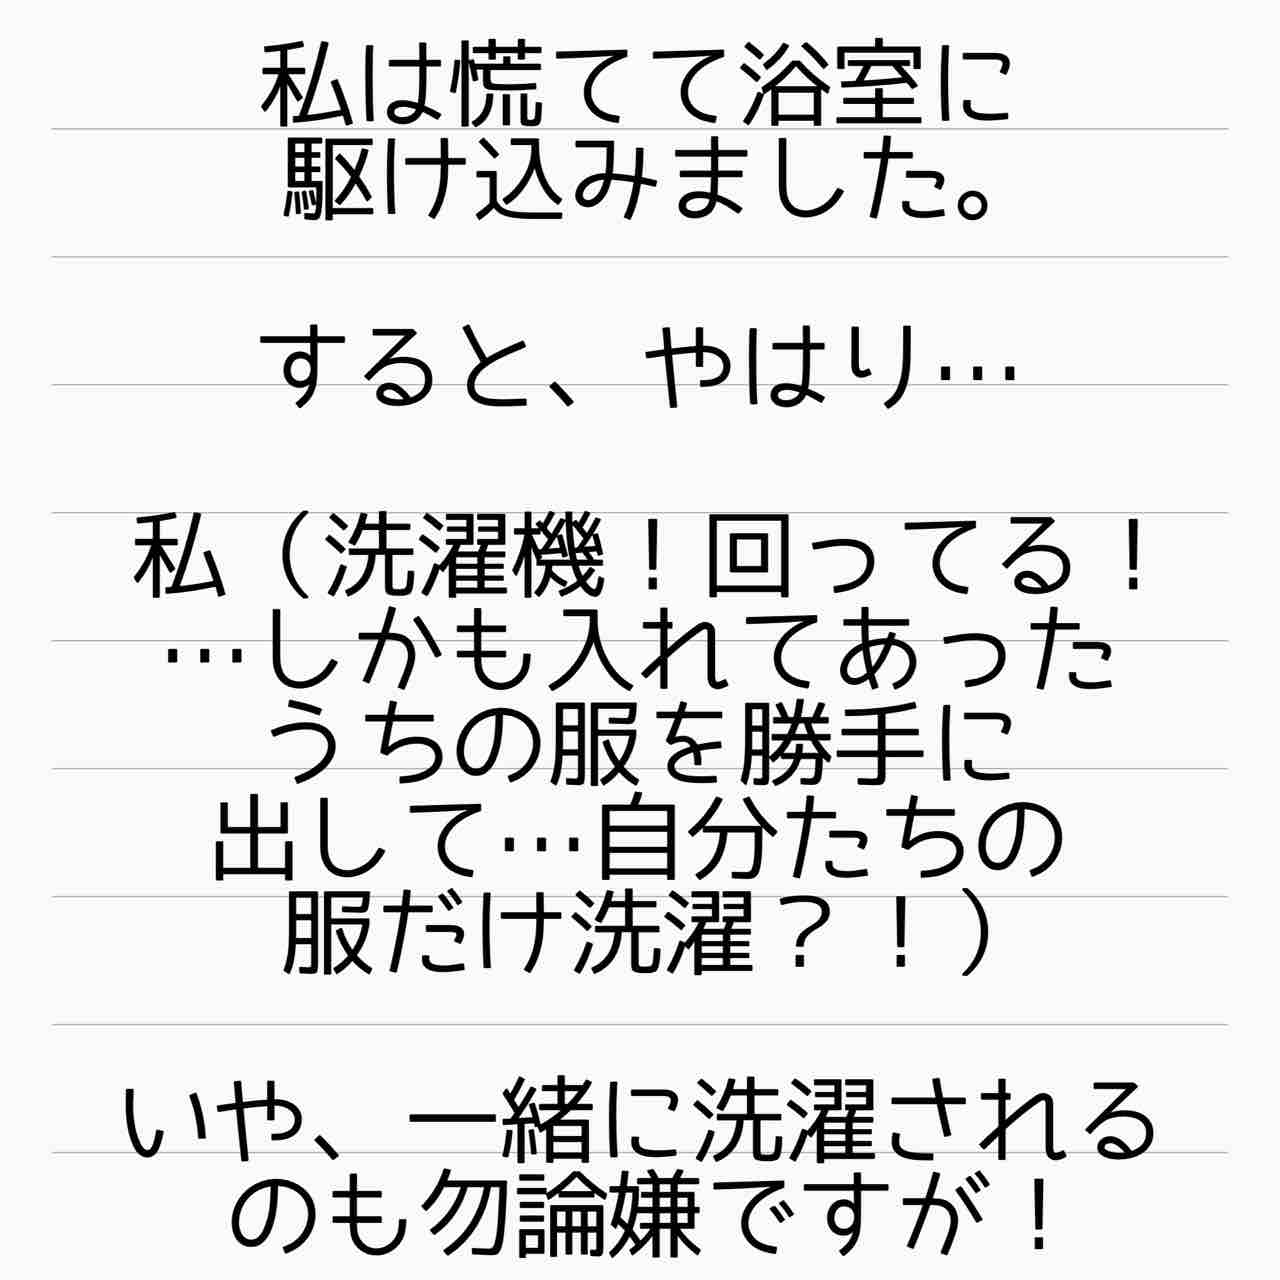 私は慌てて浴室に
駆け込みました。
すると、やはり…
私（洗濯機！回ってる！
…しかも入れてあった
うちの服を勝手に
出して…自分たちの
服だけ洗濯？！）
いや、一緒に洗濯される
のも勿論嫌ですが！